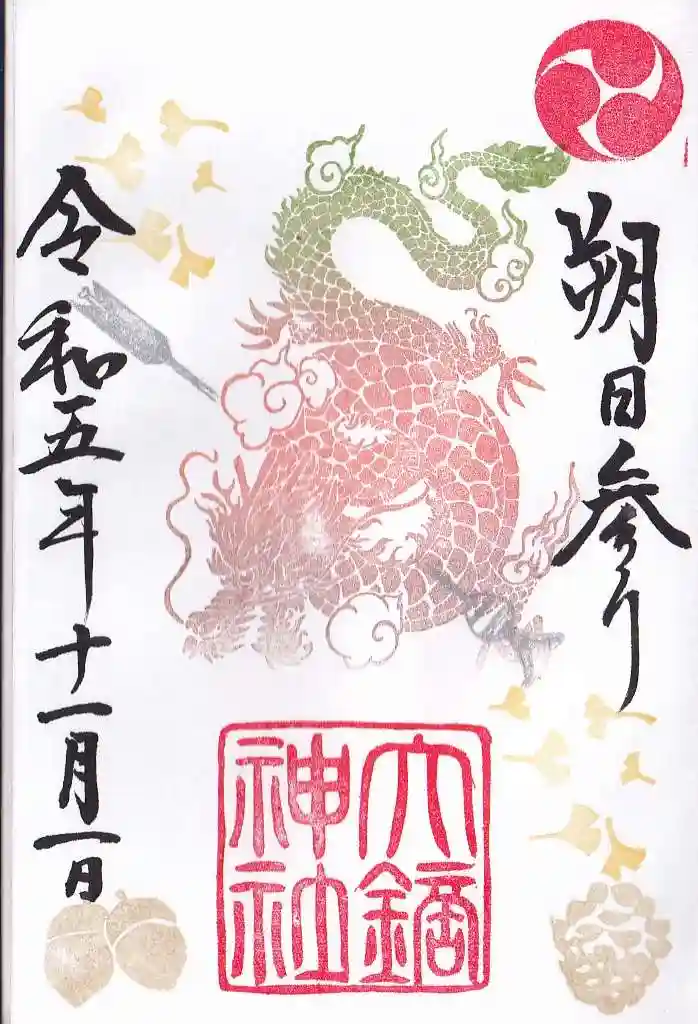 朔日参り
六鏑神社
令和五年十一月一日